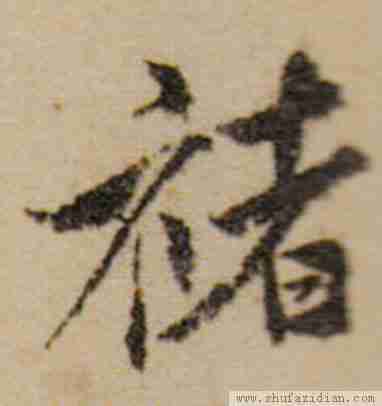 褚
www.shufazidian.com